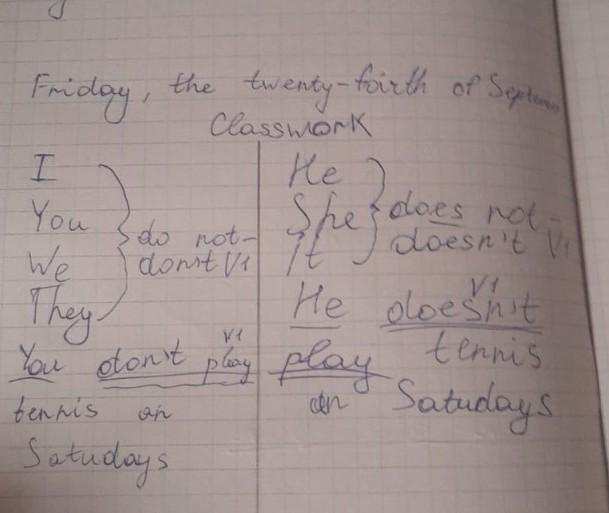 Friday, the twenty-foirth of Septem
Classwork
I
You
We
They
do not -
don't V1
You don't play
V1
tennis on
Satudays
He
She
It
does not -
doesn't V1
He doesn't
V1
play tennis
on Satudays